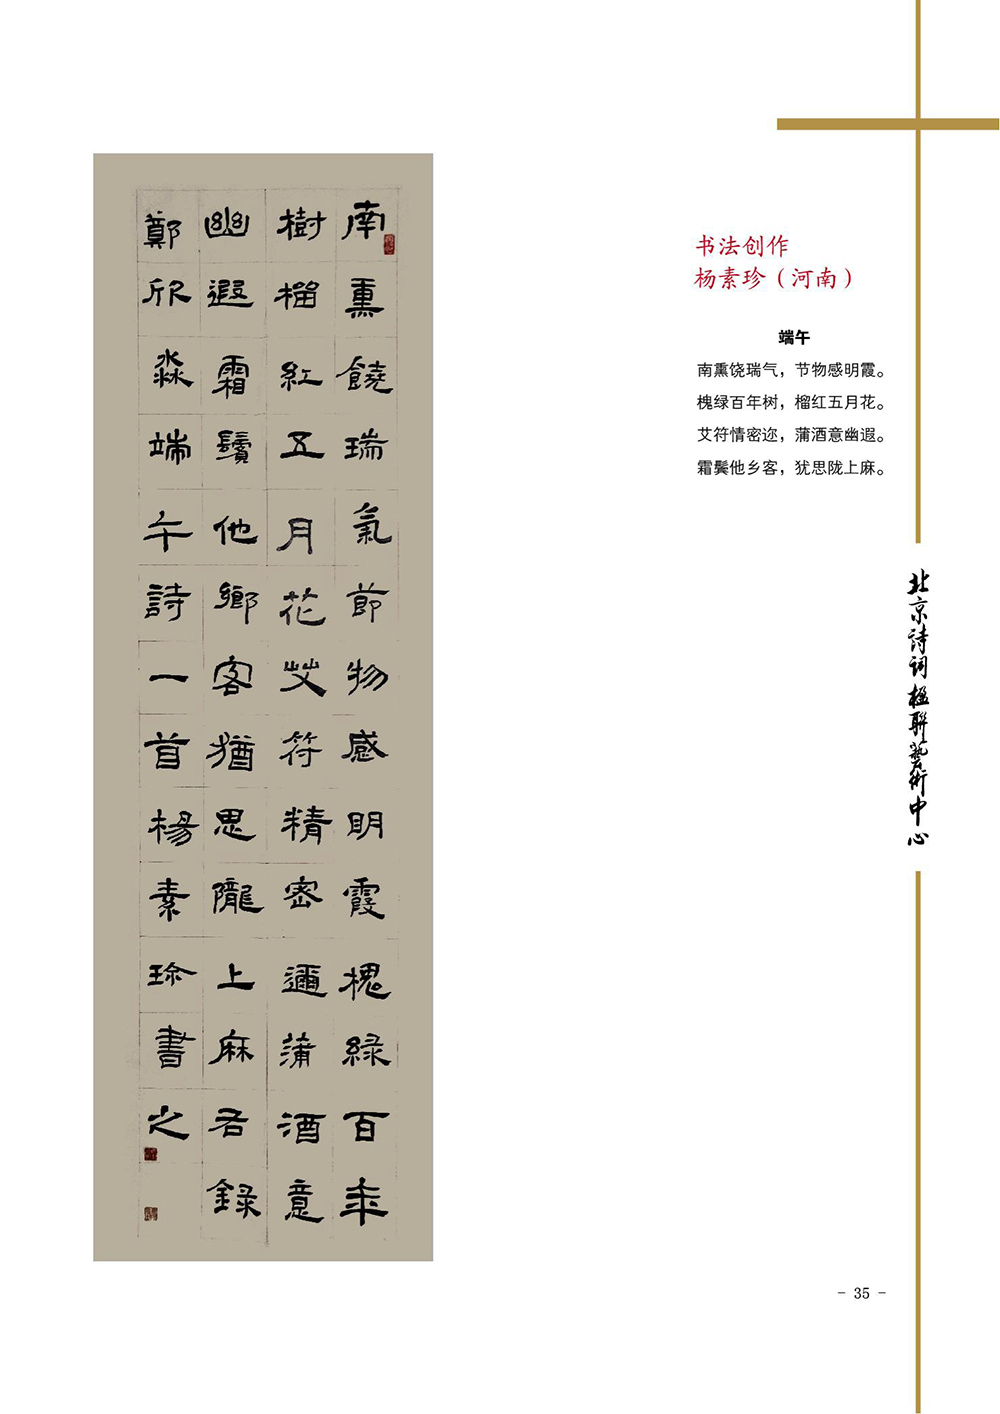 南熏饒瑞氣節物感明霞槐綠百年
樹榴紅五月花艾符精密邇蒲酒意
幽遐霜鬢他鄉客猶思隴上麻右録
鄭欣淼端午詩一首楊素珍書之
书法创作
杨素珍（河南）
端午
南熏饶瑞气，节物感明霞。
槐绿百年树，榴红五月花。
艾符情密迩，蒲酒意幽遐。
霜鬓他乡客，犹思陇上麻。
北京诗词楹聯藝術中心
- 35 -